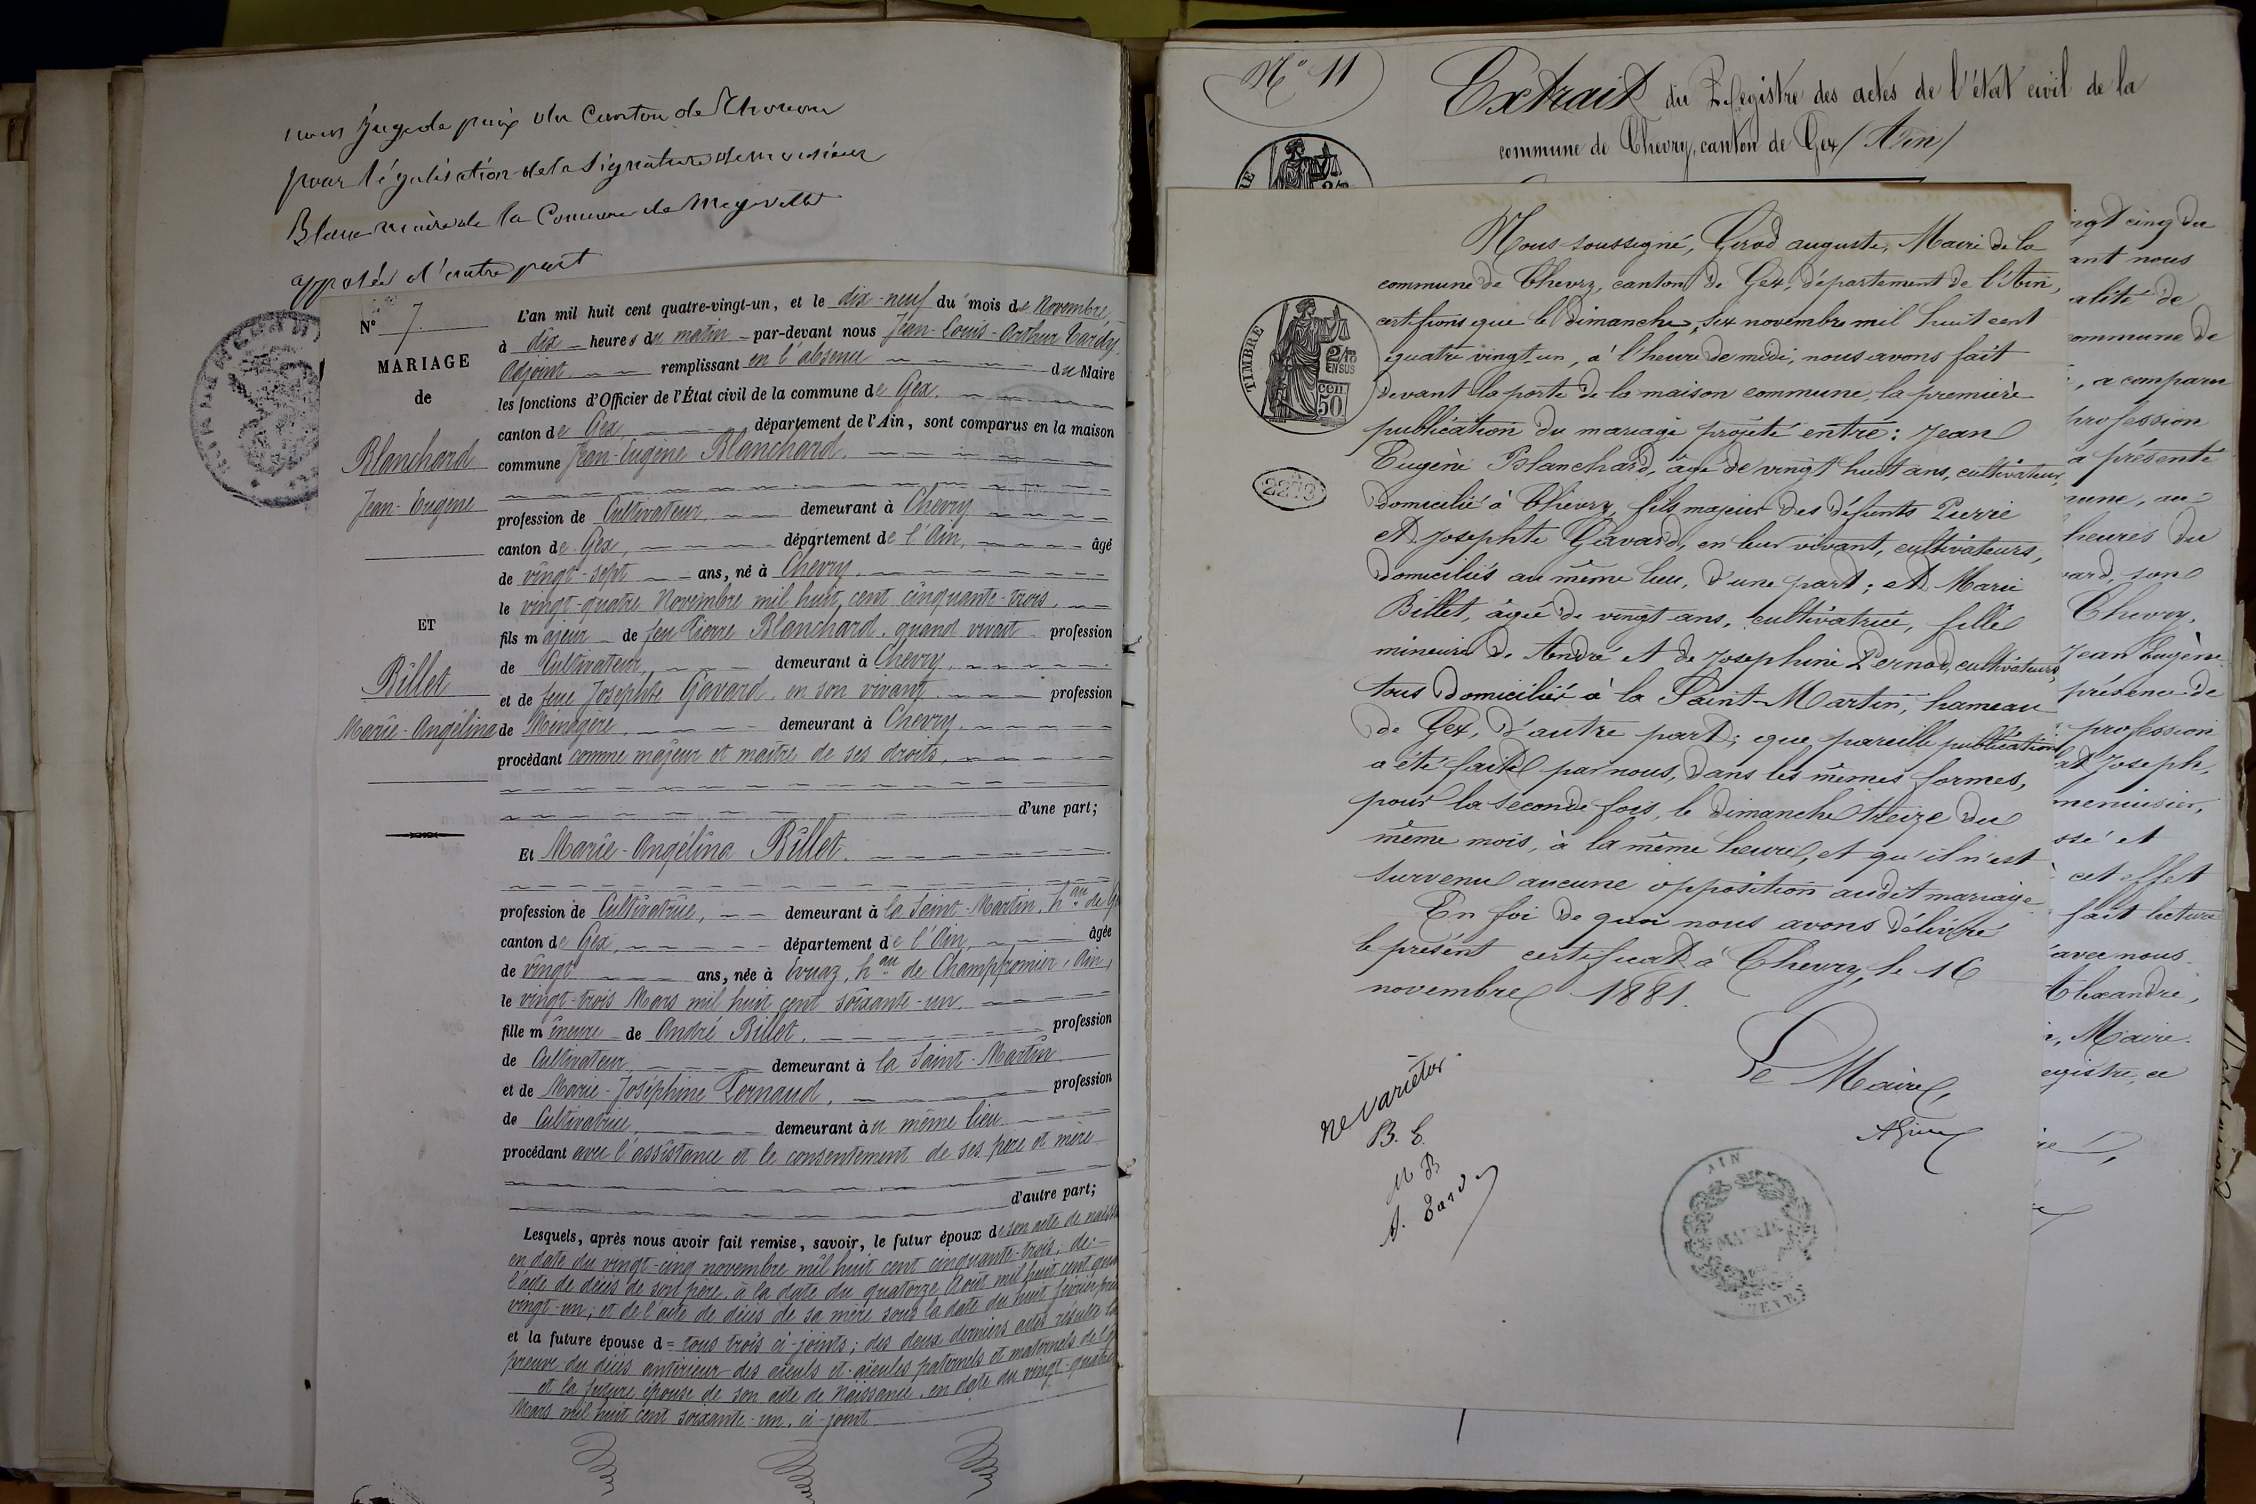 nous Juge de paix du Canton de Thonon
pour légalisation de la signature de monsieur
Blanc maire de la Commune de
apposée d'autre part
N° 7
MARIAGE
de
Blanchard
Jean-Eugène
ET
Billet
Marie-Angélina
L'an mil huit cent quatre-vingt-un, et le dix-neuf du mois de Novembre,
à dix heures du matin par-devant nous Jean-Louis-Arthur Tardy
Adjoint remplissant en l'absence du Maire
les fonctions d'Officier de l'État civil de la commune de Gex,
canton de Gex, département de l'Ain, sont comparus en la maison
commune Jean-Eugène Blanchard,
profession de Cultivateur, demeurant à Chevry
canton de Gex, département de l'Ain, âgé
de vingt-sept ans, né à Chevry,
le vingt-quatre Novembre mil huit cent cinquante-trois,
fils majeur de feu Pierre Blanchard, quand vivait profession
de Cultivateur, demeurant à Chevry,
et de feue Josephte Gavard, en son vivant profession
de Ménagère, demeurant à Chevry,
procédant comme majeur et maître de ses droits,
d'une part;
Et Marie-Angélina Billet,
profession de Cultivatrice, demeurant à la Saint-Martin, hau de G
canton de Gex, département de l'Ain, âgée
de vingt ans, née à Evuaz, hau de Champfromier (Ain)
le vingt-trois Mars mil huit cent soixante-un,
fille mineure de André Billet, profession
de Cultivateur, demeurant à la Saint-Martin
et de Marie-Joséphine Pernaud, profession
de Cultivatrice, demeurant au même lieu
procédant avec l'assistance et le consentement de ses père et mère
d'autre part;
Lesquels, après nous avoir fait remise, savoir, le futur époux de son acte de naiss
en date du vingt-cinq novembre mil huit cent cinquante-trois, de
l'acte de décès de son père, à la date du quatorze Août mil huit cent qua
vingt-un; et de l'acte de décès de sa mère sous la date du huit février
et la future épouse d= tous trois ci-joints; des deux derniers actes résulte la
preuve du décès antérieur des aïeuls et aïeules paternels et maternels de l'
et la future épouse de son acte de naissance, en date du vingt-quatre
Mars mil huit cent soixante-un, ci-joint
N° 11
Extrait du Registre des actes de l'état civil de la
commune de Chevry, canton de Gex (Ain)
TIMBRE
2/10 EN SUS
50 cen
2273
Nous soussigné, Girod auguste, Maire de la
commune de Chevry, canton de Gex, département de l'Ain,
certifions que le dimanche, six novembre mil huit cent
quatre vingt-un, à l'heure de midi, nous avons fait
devant la porte de la maison commune, la première
publication du mariage projeté entre: Jean
Eugène Blanchard, âgé de vingt huit ans, cultivateur,
domicilié à Chevry, fils majeur des défunts Pierre
et Josephte Gavard, en leur vivant, cultivateurs,
domiciliés au même lieu, d'une part; et Marie
Billet, âgée de vingt ans, cultivatrice, fille
mineure de André et de Josephine Pernod, cultivateurs,
tous domiciliés à la Saint-Martin, hameau
de Gex, d'autre part; que pareille publication
a été faite par nous, dans les mêmes formes,
pour la seconde fois, le dimanche treize du
même mois, à la même heure, et qu'il n'est
survenu aucune opposition audit mariage.
En foi de quoi nous avons délivré
le présent certificat à Chevry, le 16
novembre 1881.
Le Maire,
AGirod
ne varietur
B. E.
M B
A. Tardy
AIN
MAIRIE
CHEVRY
ingt cinq du
ant nous
alité de
ommune de
, a comparu
profession
a présenté
mune, au
heures du
vard, son
Chevry,
Jean Eugène
présence de
profession
at Joseph,
menuisier,
osé et
cet effet
fait lecture
avec nous.
Alexandre,
, Maire.
egistre, ce